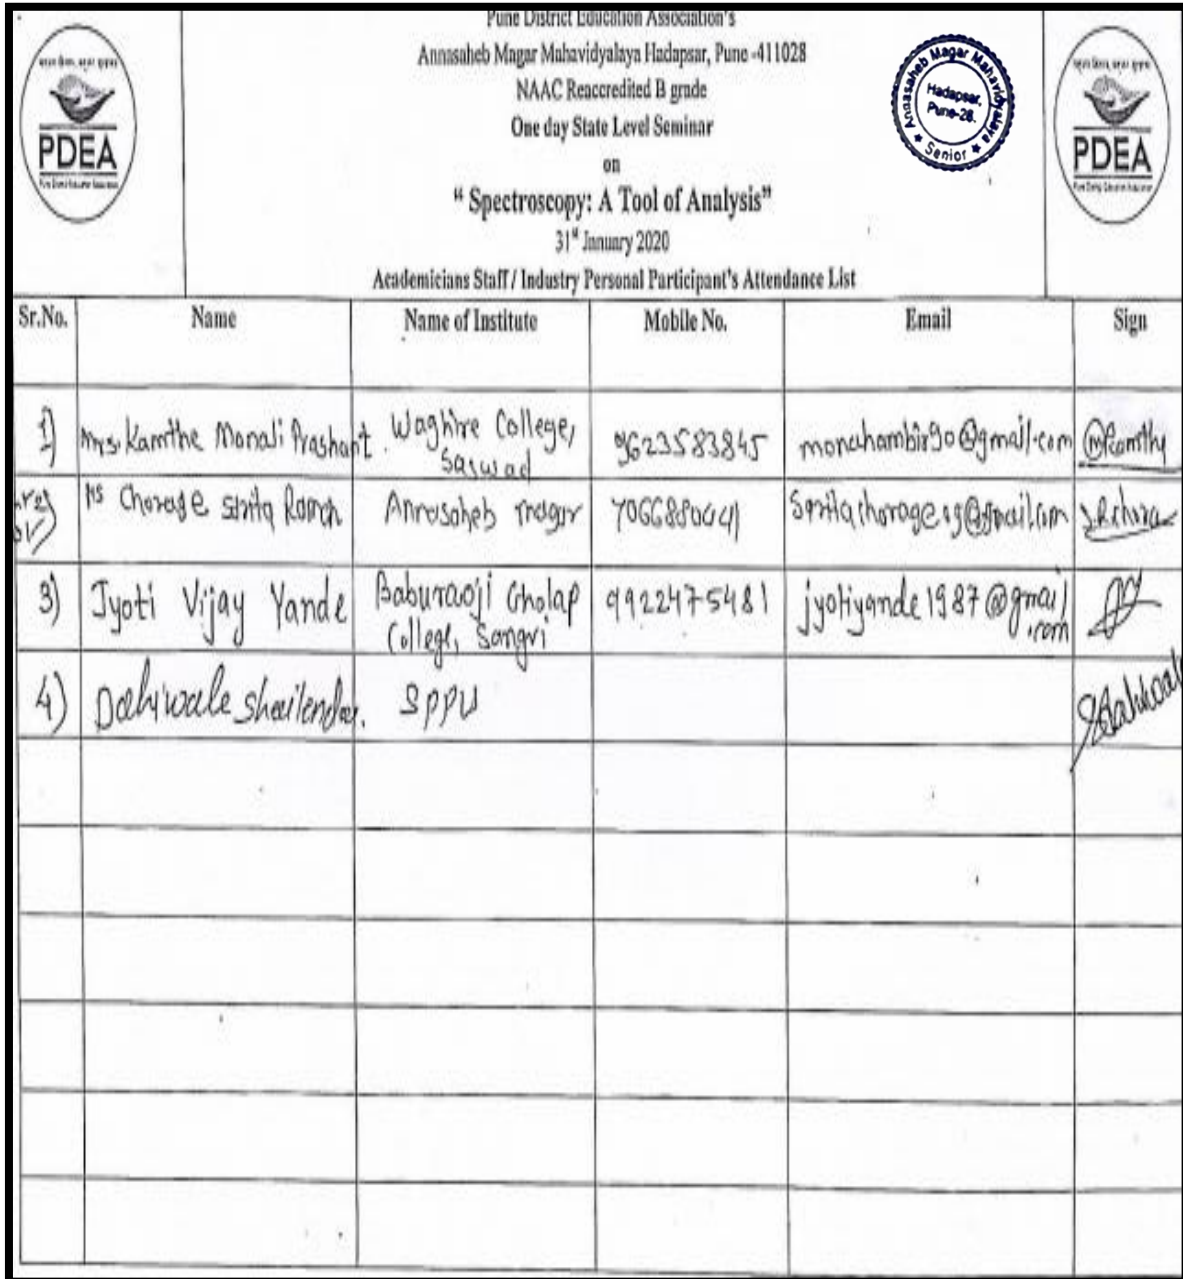 Pune District Education Association's
Annasaheb Magar Mahavidyalaya Hadapsar, Pune -411028
NAAC Reaccredited B grade
One day State Level Seminar
on
“ Spectroscopy: A Tool of Analysis”
31st January 2020
Academicians Staff / Industry Personal Participant's Attendance List
PDEA
Annasaheb Magar Mahavidyalaya
Hadapsar,
Pune-28.
★ Senior ★
PDEA
Sr.No. Name Name of Institute Mobile No. Email Sign
1) Mrs. Kamthe Monali Prashant. Waghire College, Saswad 9623583845 monahambir90@gmail.com
Ms Chorage Annasaheb magar
3) Jyoti Vijay Yande Baburaoji Gholap College, Sangvi 9922475481 jyotiyande1987@gmail.com
4) Dahiwale Shailendra. SPPU